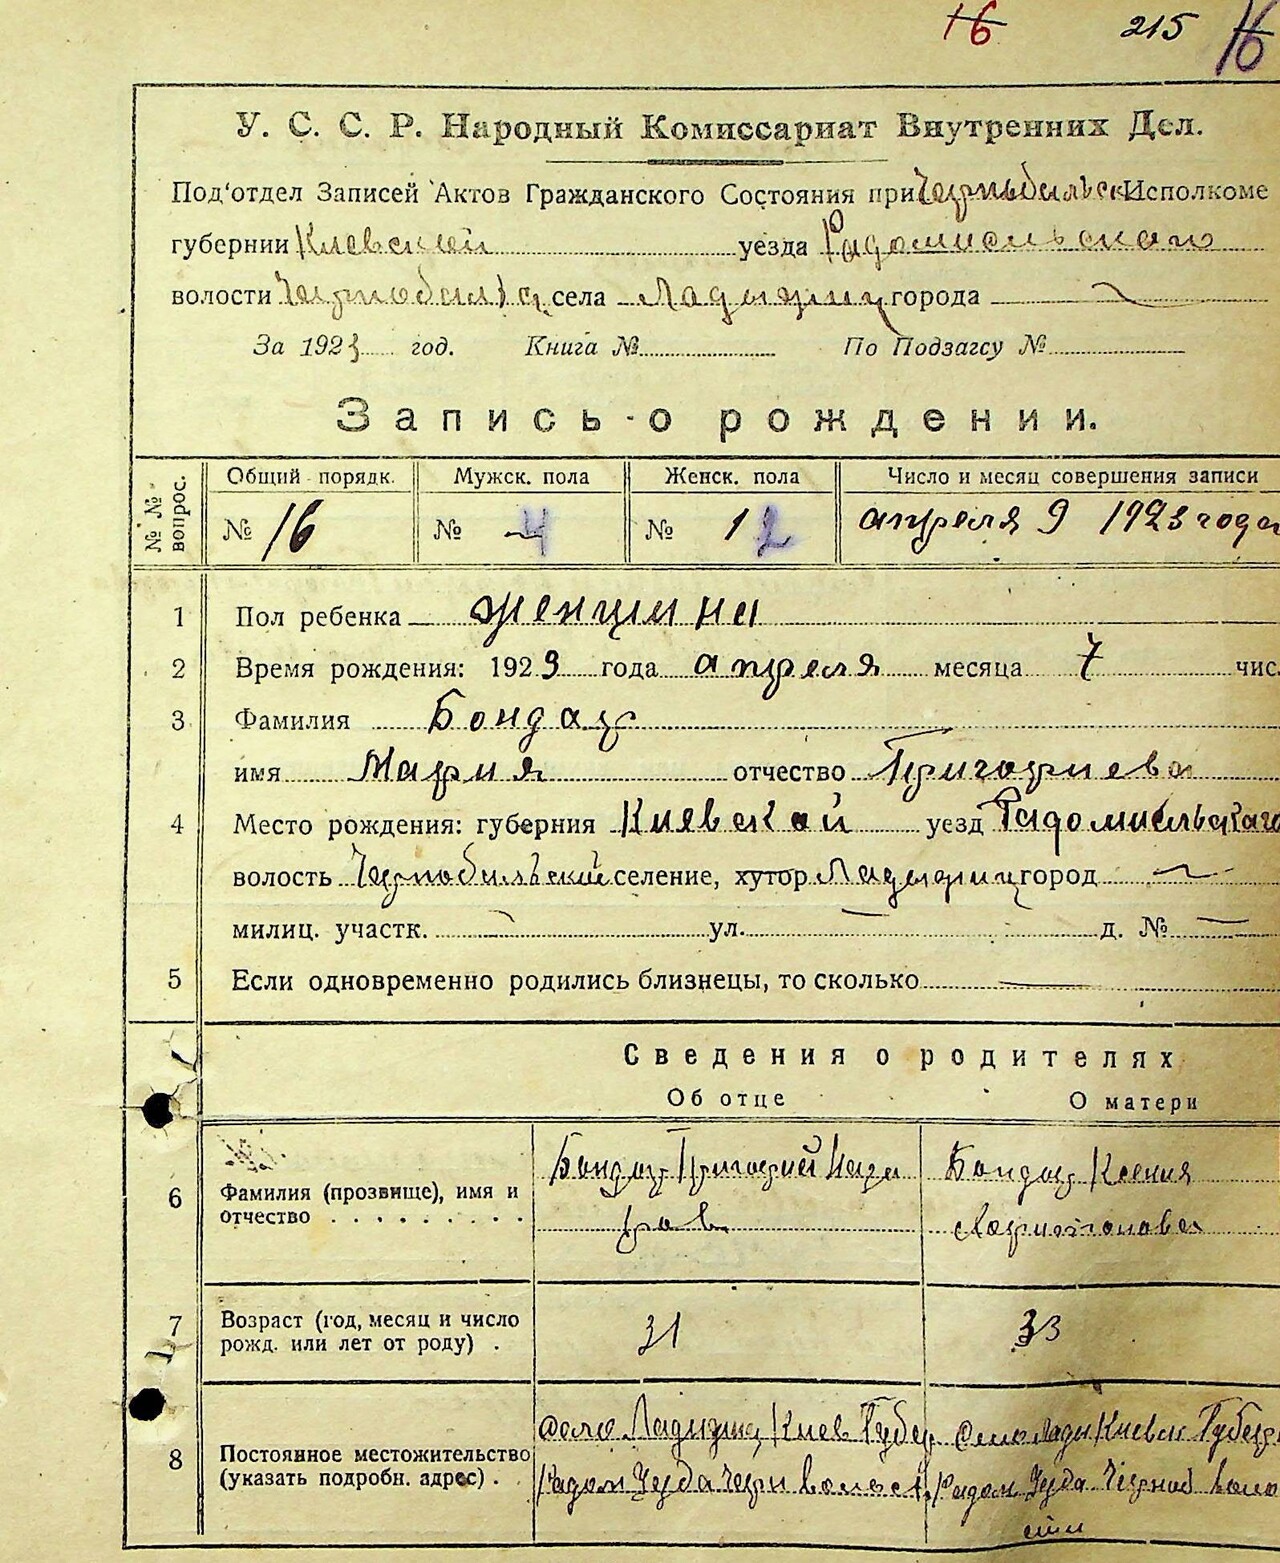 16 215 16
У. С. С. Р. Народный Комиссариат Внутренних Дел.
Под'отдел Записей Актов Гражданского Состояния при Чернобильск Исполкоме
губернии Киевской уезда Радомисльскаго
волости села Ладыжич города
За 1923 год. Книга № По Подзагсу №
Запись о рождении.
№№ вопрос. Общий порядк. Мужск. пола Женск. пола Число и месяц совершения записи
№ 16 № 4 № 12 апреля 9 1923 года
1 Пол ребенка женщина
2 Время рождения: 1923 года апреля месяца 7 чис.
3 Фамилия Бондар
имя Мария отчество Григориева
4 Место рождения: губерния Киевской уезд Радомисльскаго
волость Чернобильский селение, хутор Ладыжич город
милиц. участк. — ул. — д. № —
5 Если одновременно родились близнецы, то сколько —
Сведения о родителях
Об отце О матери
6 Фамилия (прозвище), имя и Бондар Григорий Наза Бондар Ксения
отчество . . . . . . . . . ров Харитонова
7 Возраст (год, месяц и число 31 33
рожд. или лет от роду) .
село Киев Губер село Лади Киевск Губер
8 Постоянное местожительство
(указать подробн. адрес) . Радом Уезда Черн волост Радом Уезда Черноб воло
сти